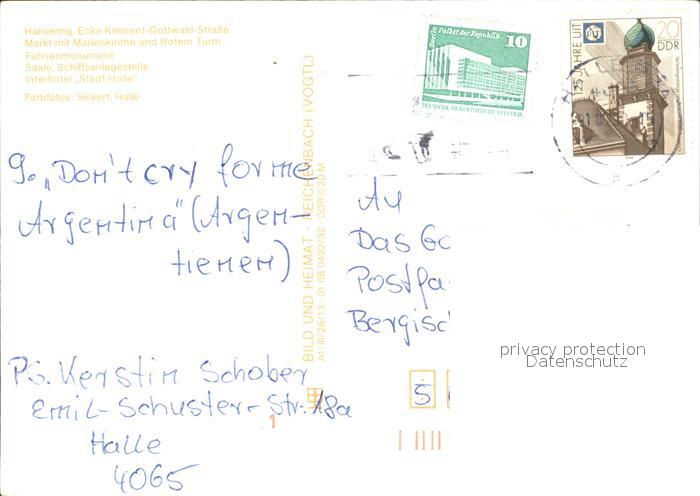 Hansering, Ecke Klement-Gottwald-Straße
Markt mit Marienkirche und Rotem Turm
Fahnenmonument
Saale, Schiffsanlegestelle
Interhotel „Stadt Halle"
Farbfotos: Sickert, Halle
Berlin Palast der Republik
10
DEUTSCHE DEMOKRATISCHE REPUBLIK
125 JAHRE UIT
UIT
20
DDR
9. „Don't cry for me
Argentina" (Argen-
tienen)
PS. Kerstin Schober
Emil-Schuster-Str. 18a
Halle
4065
BILD UND HEIMAT · REICHENBACH (VOGTL)
A1/III/26/13 · 01 08 0492/32 · DDR 0,20 M
An
Das Go
Postfa
Bergisc
privacy protection
Datenschutz
5
1